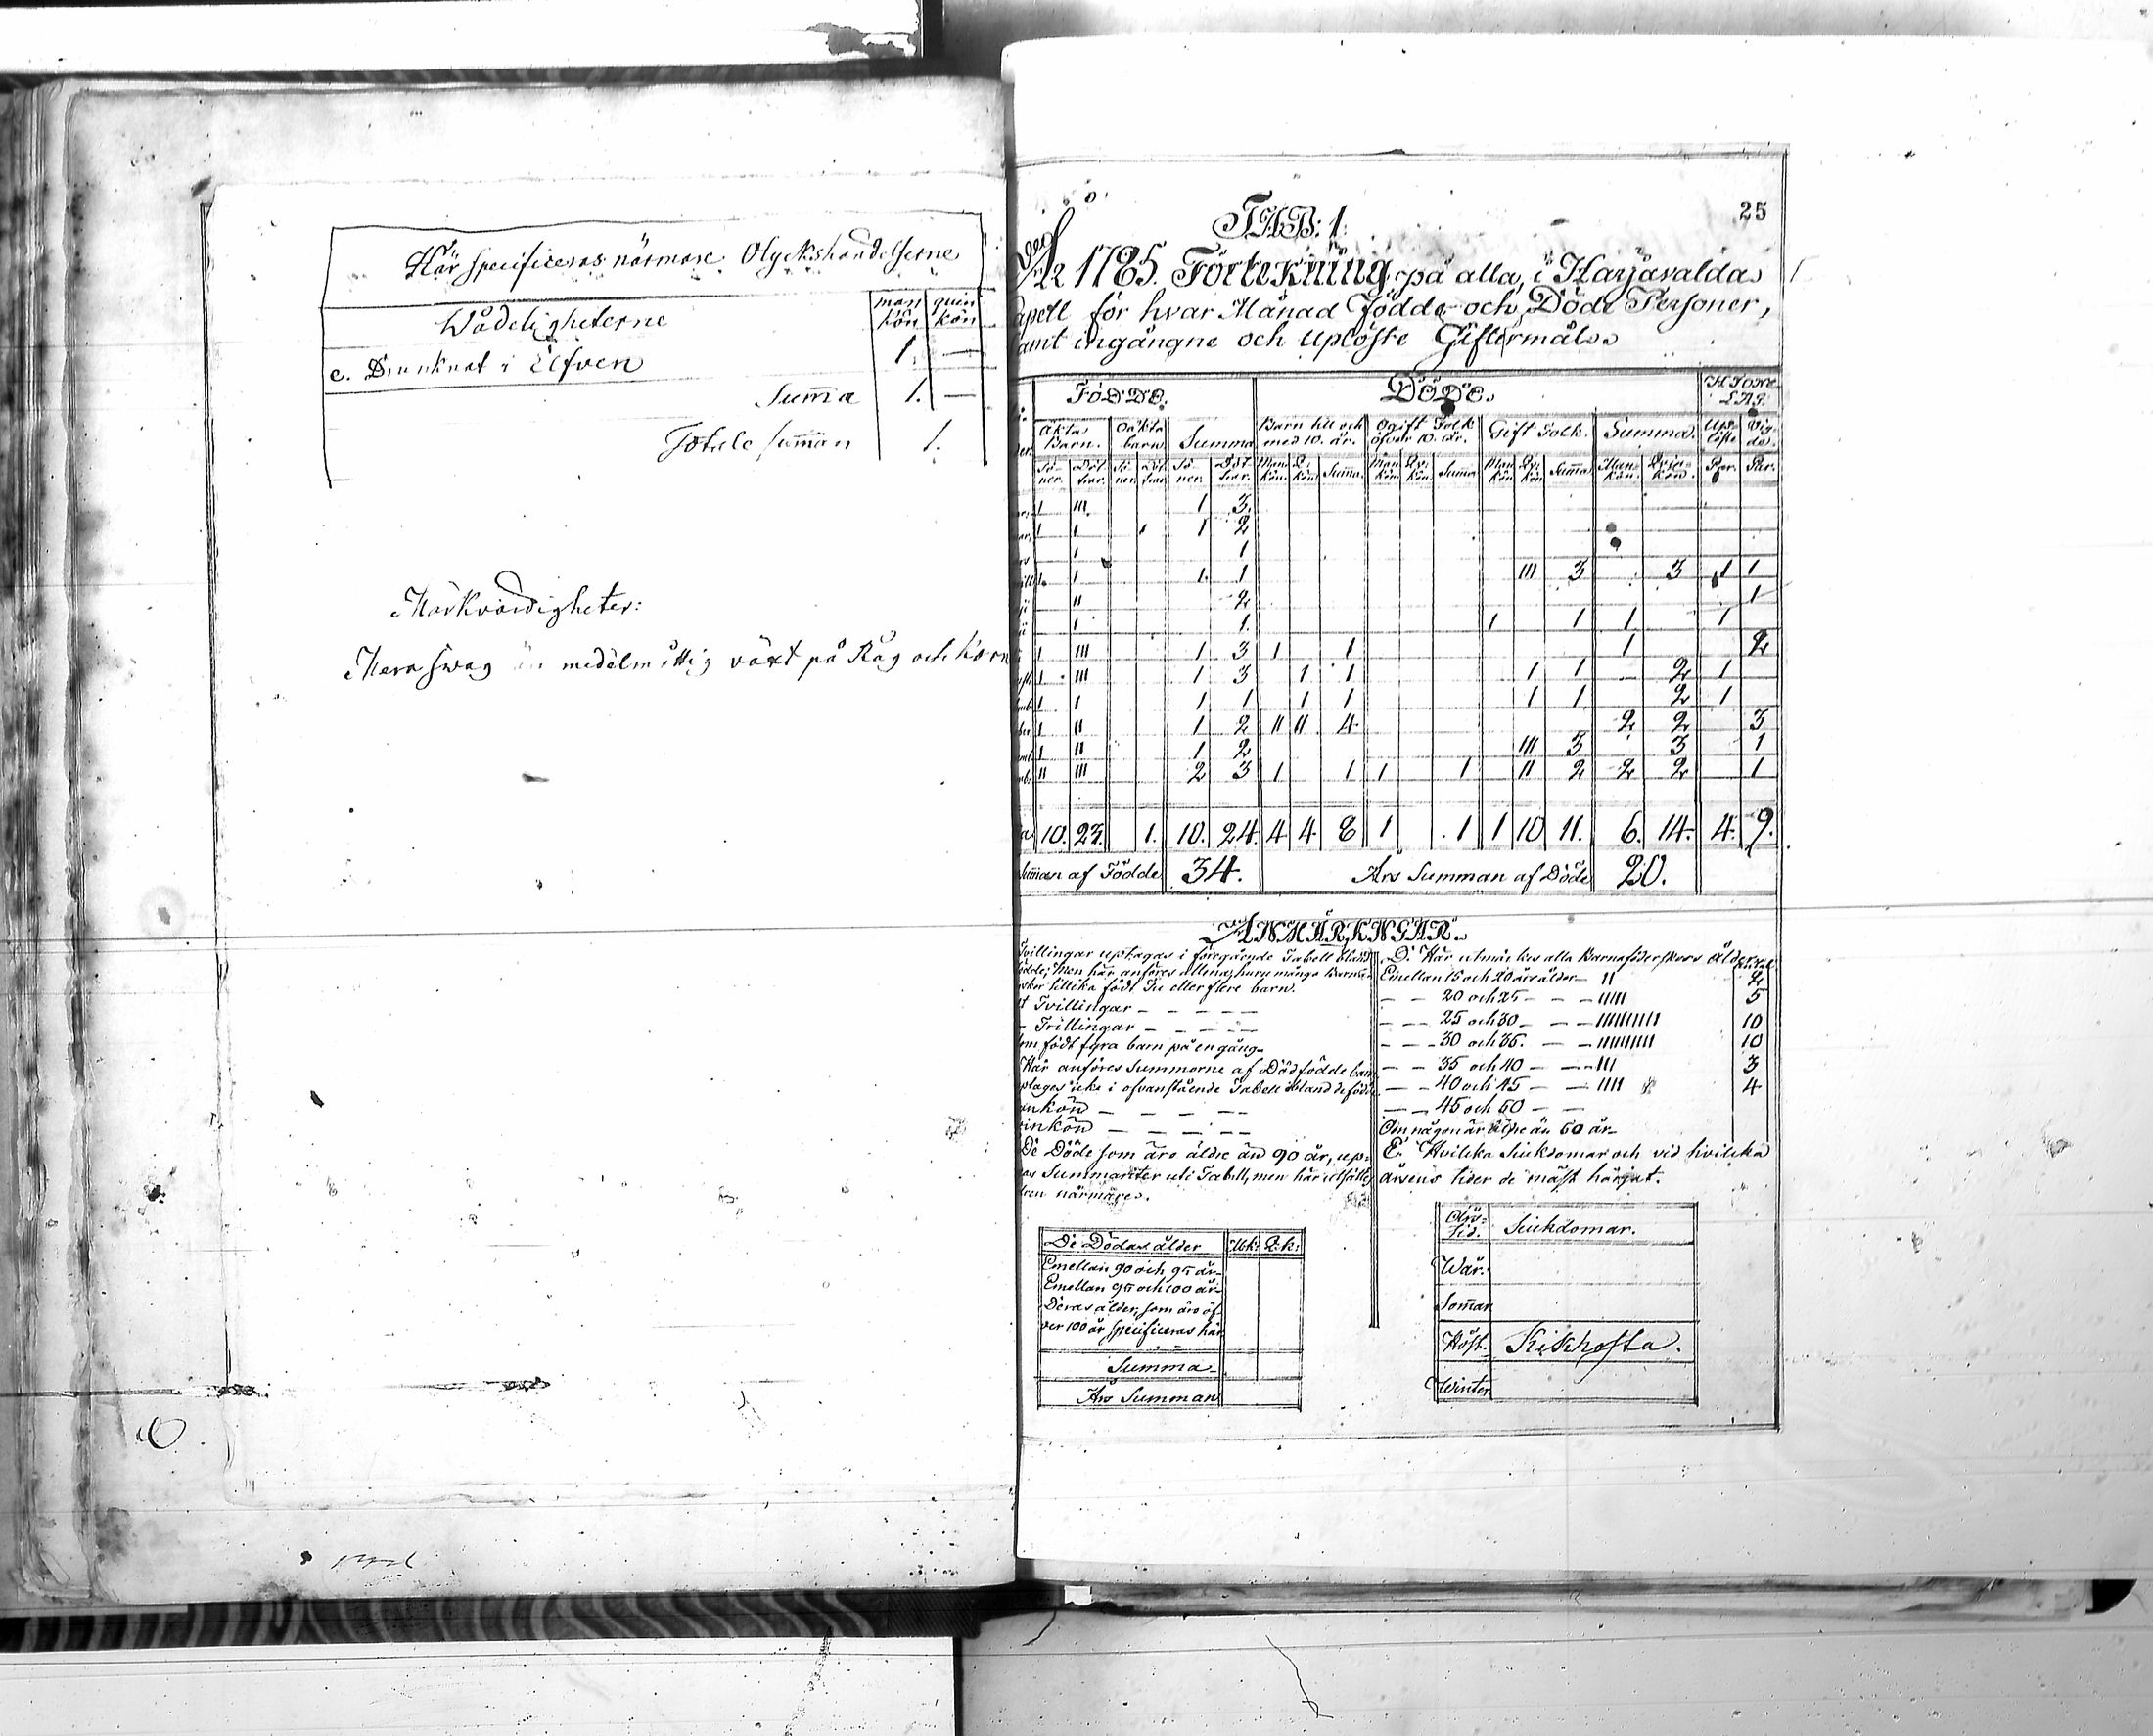 Här specificeras närmare Olyckshändelserne
Wådeligheterne man kön quin kön
c. Drunknat i Elfven 1. —
Summa 1. —
Totale summan 1.
Märkvärdigheter:
Mera swag än medelmåttig växt på Råg och Korn
25
TAB: 1.
1785. Förtekning på alla, i Harjavalda
apell för hvar Månad Födde och Döde Personer,
amt ingångne och uplöste Giftermål.
FÖDDE. DÖDE.
Äkta Barn. Oäkta barn Summa Barn till och med 10. år. Ogift Folk öfver 10. år. Gift Folk. Summa. Up-löste Vig-de.
Sö-ner. Döt-trar. Sö-ner. Döt-trar. Sö-ner. Döt-trar. Man kön. Q: kön Summa. Man kön. Qv: kön. Summa Man kön Qv: kön Summa Man-kön. Qvin-kön. Par. Par.
1 III 1 3.
1 1 1 1 2
1 1
1. 1 1. 1 III 3 3 1 1
II 2 1
1 1. 1 1 1 1
1 III 1 3 1 1 1 2
1 III 1 3 1 1 1 1 2 1
1 1 1 1 1 1 1 1 2 1
1 II 1 2 II II 4 2 2 3
1 II 1 2 III 3 3 1
II III 2 3 1 1 1 1 II 2 2 2 1
10. 23. 1. 10. 24. 4 4 8 1 1 1 10 11. 6. 14. 4. 9.
Summan af Födde 34. Års Summan af Döde 20.
ANMÄRKNGAR.
Tvillingar uptagas i föregående Tabell bland
födde; Men här anföres allena, huru många Barna-
skor tillika födt Tu eller flere barn.
t Tvillingar — — — — —
— Trillingar — — — — —
om födt fyra barn på en gång—
Här anföres Summorne af Dödfödde barn
ptages icke i ofvanstående Tabell ibland de födde
ankön — — — — —
inkön — — — — —
De Döde som äro äldre än 90 år, up-
as Summariter uti Tabell, men här utsättes
ren närmare.
De Dödas ålder M.k: Q.k:
Emellan 90 och 95 år—
Emellan 95 och 100 år—
Deras ålder, som äro öf-
ver 100 år specificeras här
Summa
Års Summan
D. Här utmärkes alla Barnaföderskors Ålder Antal
Emellan 15 och 20 års ålder— II 2
— — 20 och 25 — — — IIIII 5
— — 25 och 30 — — — IIIIIIIIII 10
— — 30 och 35. — — — IIIIIIIIII 10
— — 35 och 40 — — — III 3
— — 40 och 45 — — — IIII 4
— — 45 och 50 — —
Om någon är äldre än 50 år—
E. Hvilka Siukdomar och vid hvilcka
årsens tider de mäst härjat.
Års-tid. Siukdomar.
Wår.
Sommar
Höst. Kikhosta.
Winter